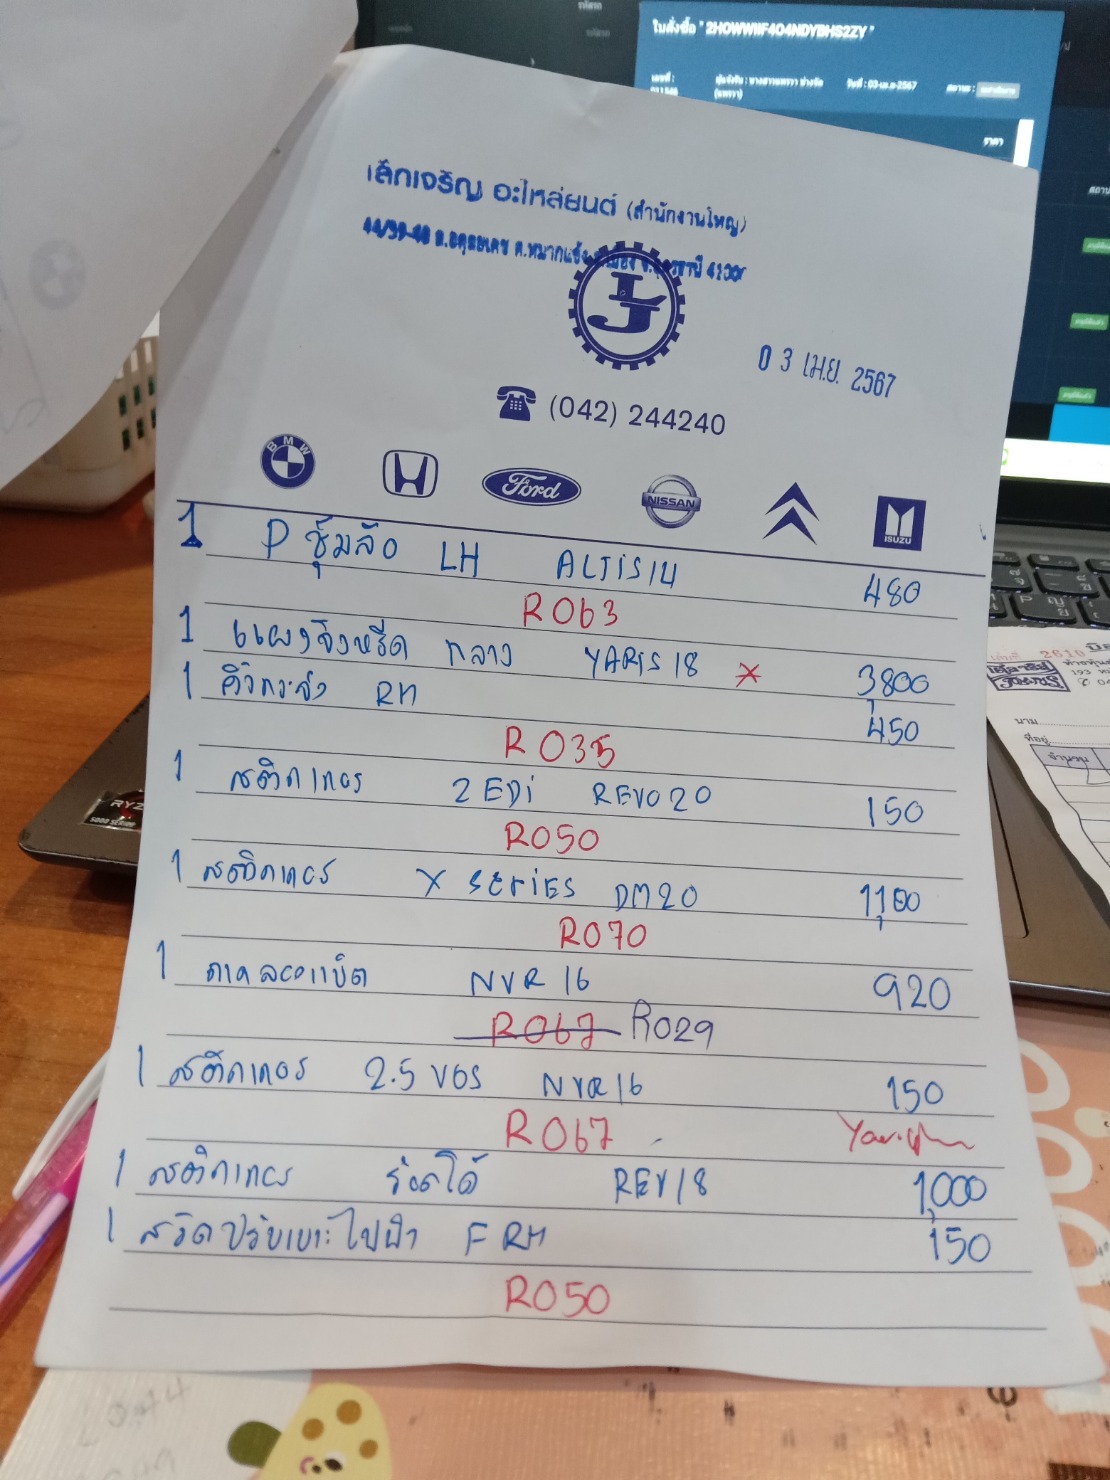 ใบสั่งซื้อ " 2HOWWIIF404NDYBHS2ZY "
เลขที่ :
วันที่ : 03-เม.ย-2567
สถานะ :
ราคา
เล็กเจริญ อะไหล่ยนต์ (สำนักงานใหญ่)
44/39-40 ถ.อดุลยเดช ต.หมากแข้ง
0 3 เม.ย. 2567
LJ
(042) 244240
BMW
Ford
NISSAN
ISUZU
1 P ซุ้มล้อ LH ALTIS14 480
R063
1 แผงจิ้งหรีด กลาง YARIS 18 × 3,800
1 คิ้วกระจัง RH 450
R035
1 สติกเกอร์ 2EDi REVO20 150
R050
1 สติกเกอร์ X SERIES DM20 1,100
R070
1 ถาดรองแบ็ต NVR 16 920
R067 R029
1 สติกเกอร์ 2.5 VGS NVR16 150
R067
1 สติกเกอร์ ร๊อคโค้ REV18 1,000
1 สวิตปรับเบาะไฟฟ้า F RH 150
R050
RYZ
5000 SERIES
2610
นาม
ที่อยู่
จำนวน